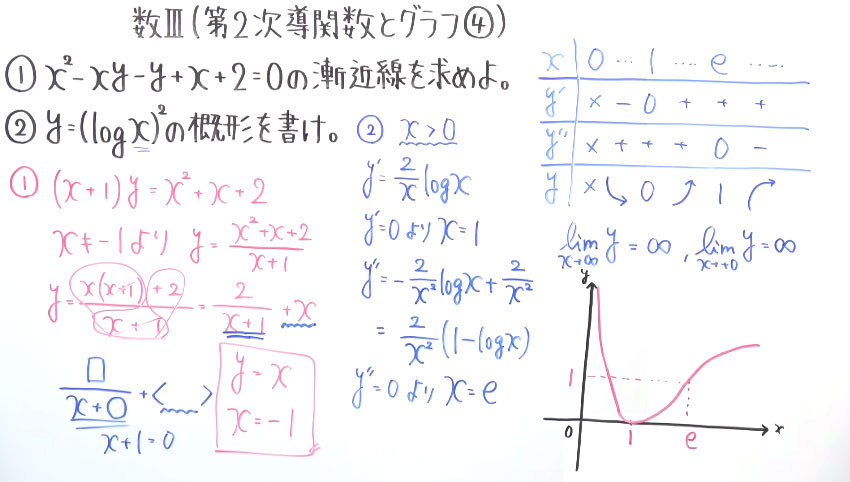 数Ⅲ(第2次導関数とグラフ④)
① x²-xy-y+x+2=0の漸近線を求めよ。
② y=(logx)²の概形を書け。
① (x+1)y=x²+x+2
x≠-1より y=(x²+x+2)/(x+1)
y=(x(x+1)+2)/(x+1)=2/(x+1)+x
□/(x+0)+< >
x+1=0
y=x
x=-1
② x>0
y'=2/x logx
y'=0より x=1
y''=-2/x² logx+2/x²
=2/x²(1-logx)
y''=0より x=e
x 0 … 1 … e …
y' × - 0 + + +
y'' × + + + 0 -
y × 0 1
lim x→∞ y=∞, lim x→+0 y=∞
y
1
0 1 e x